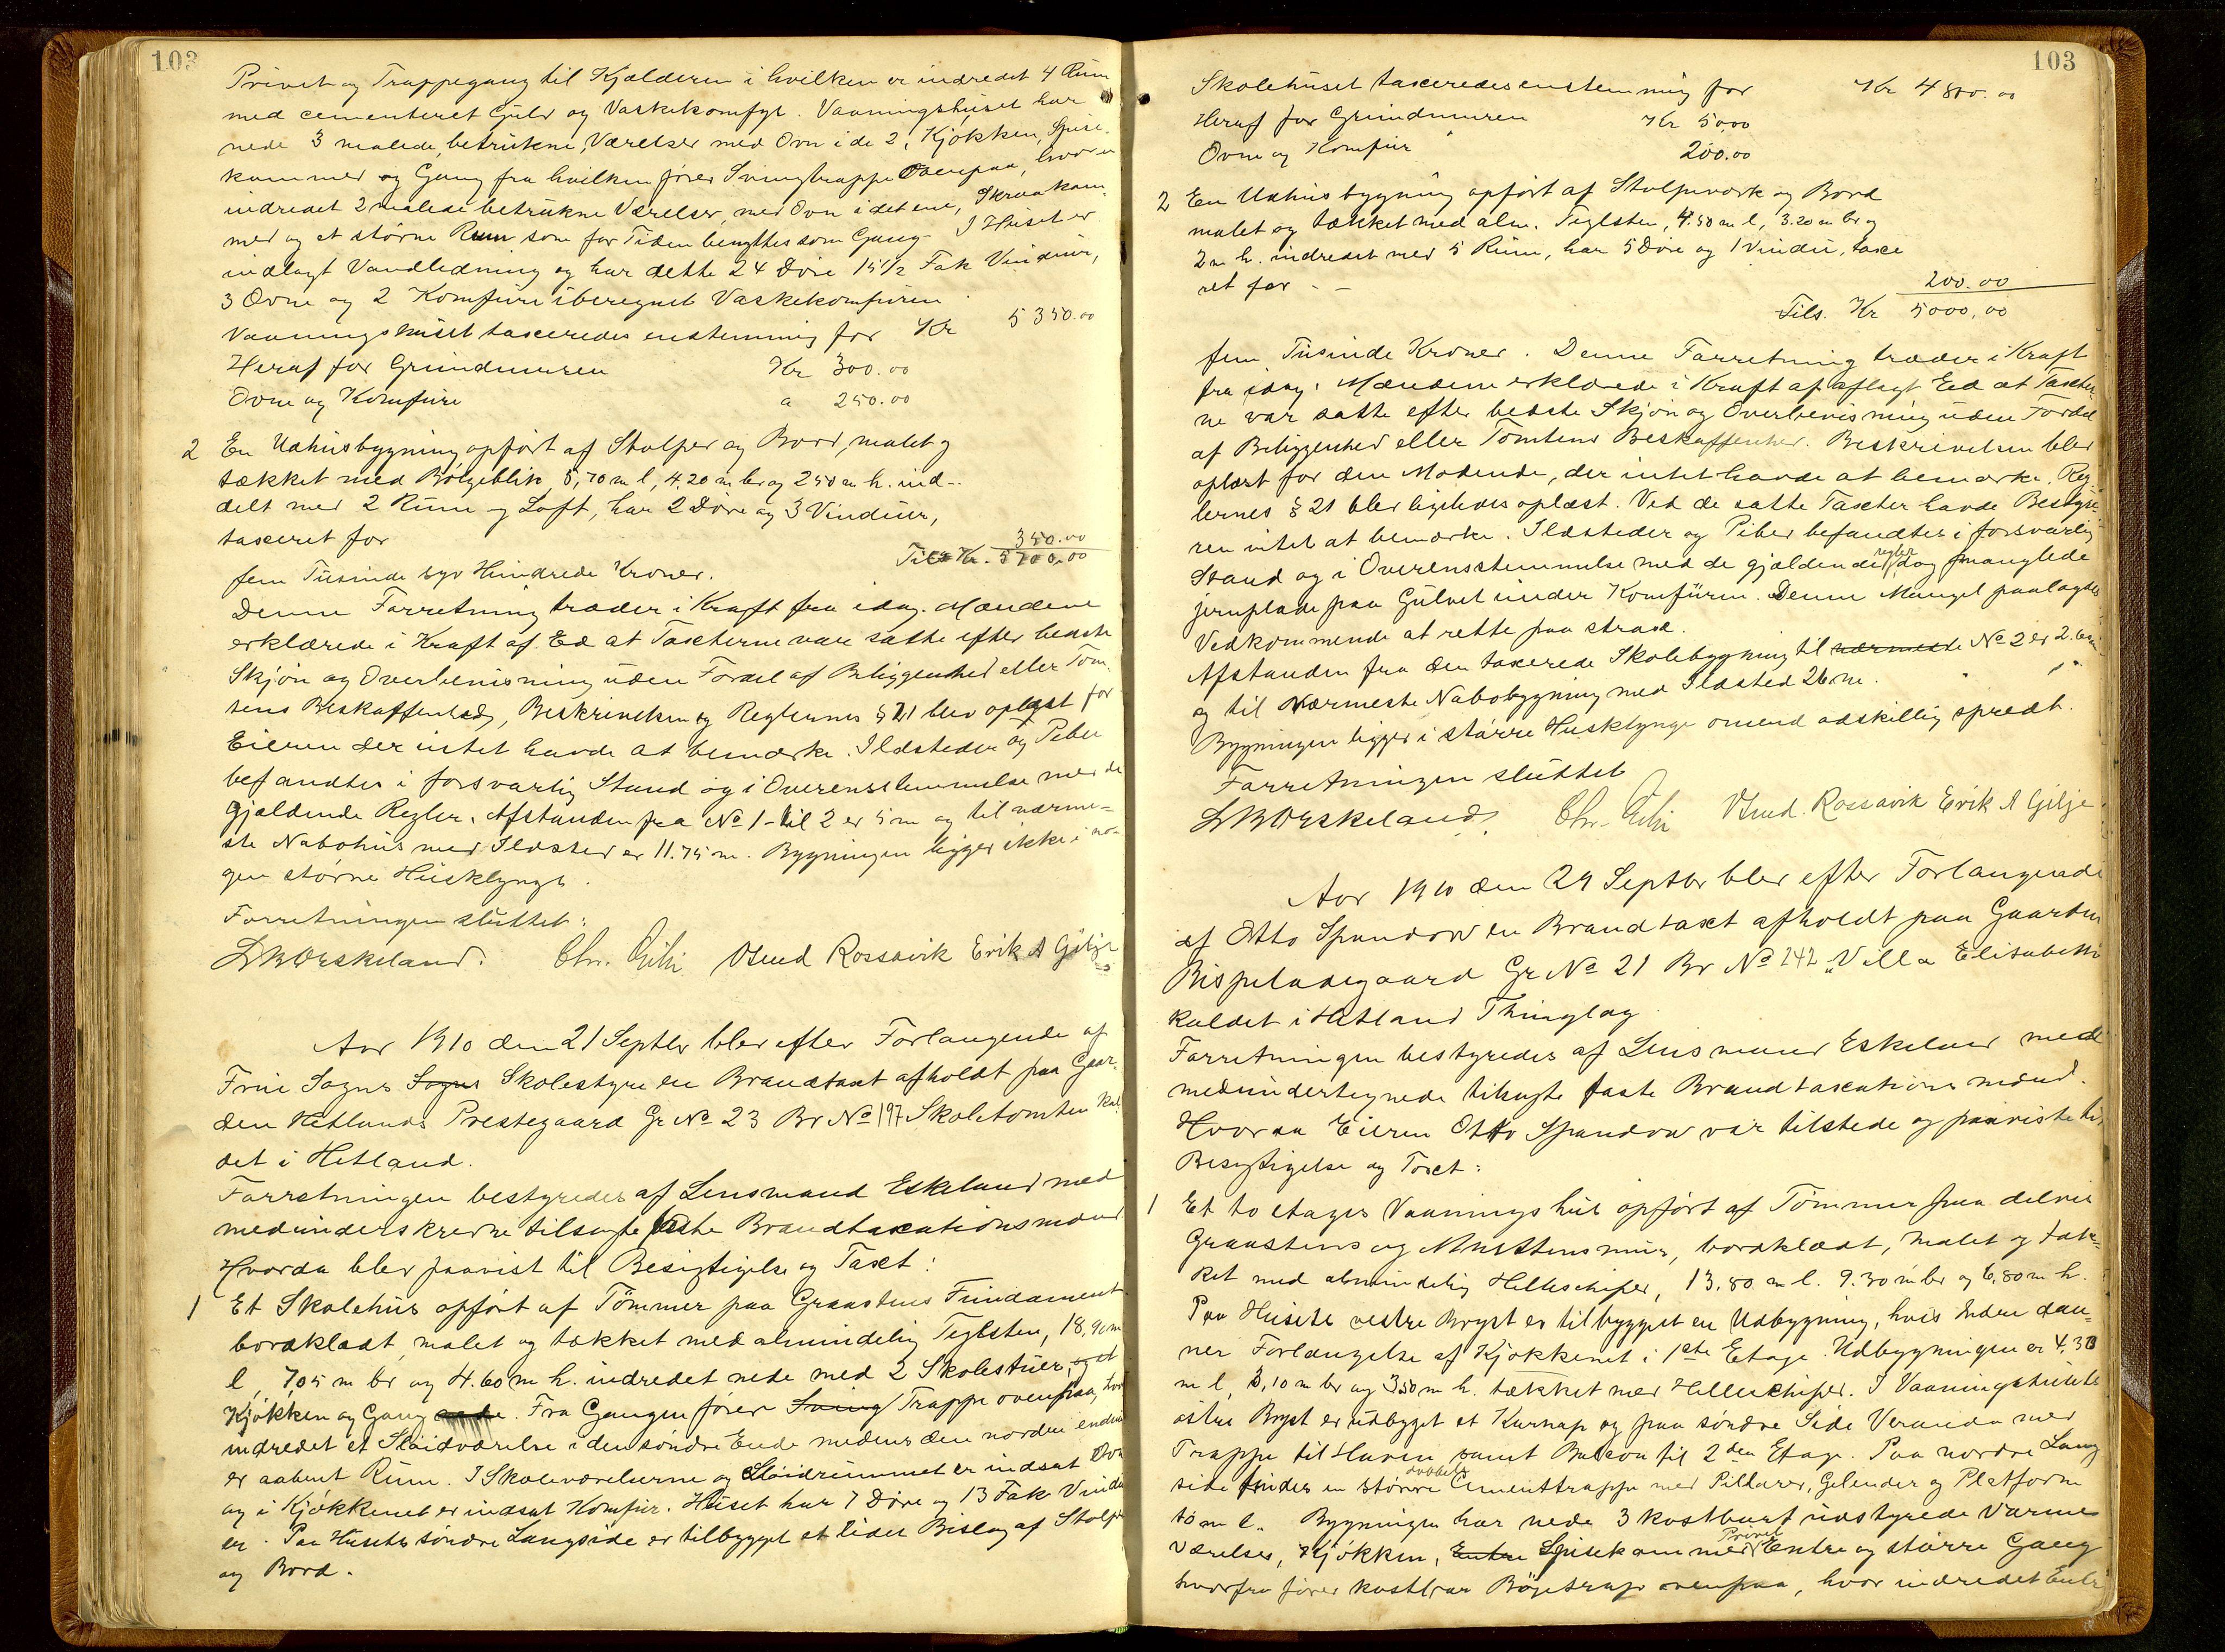 103
Privet og Trappegang til Kjælderen i hvilken er indredet 4 Rum
med cementeret Gulv og Vaskekomfyr. Vaaningshuset har
nede 3 malede, betrukne, Værelser med Ovn i de 2, Kjøkken, Spise-
kammer og Gang fra hvilken fører Svingtrappe Ovenpaa, hvor er
indredet 2 malede betrukne Værelser, med Ovn i det ene, Skraakam-
mer og et större Rum som for Tiden benyttes som Gang. I Huset er
indlagt Vandledning og har dette 24 Döre 15 1/2 Fak Vinduer,
3 Ovne og 2 Komfure iberegnet Vaskekomfuren.
Vaaningshuset taxeredes enstemmig for Kr 5350.00
Heraf for Grundmuren Kr 300.00
Ovne og Komfure a 250.00
2 En Udhusbygning opført af Stolper og Bord, malet og
tækket med Bölgeblik, 5,70 m l, 4.20 m br og 250 m h. ind-
delt med 2 Rum og Loft, har 2 Döre og 3 Vinduer,
taxeret for 350.00
Tils Kr. 5700.00
fem Tusinde syv Hundrede Kroner.
Denne Forretning træder i Kraft fra idag. Mændene
erklærede i Kraft af Ed at Taxterne vare satte efter bedste
Skjön og Overbevisning uden Fordel af Beliggenhed eller Tom-
tens Beskaffenhed, Beskrivelsen og Reglernes § 21 blev oplæst for
Eieren der intet havde at bemærke. Ildsteder og Piber
befandtes i forsvarlig Stand og i Overensstemmelse med de
gjældende Regler. Afstanden fra No 1 til 2 er 5 m og til nærme-
ste Nabohus med Ildsted er 11.75 m. Bygningen ligger ikke i no-
gen större Husklynge.
Forretningen sluttet:
L B Ørskeland. Chr. Gilje Knud Rossavik Erik A Gilje
Aar 1910 den 21 Septbr blev efter Forlangende af
Frue Sogns Sogns Skolestyre en Brandtaxt afholdt paa Gaar-
den Hetlands Prestegaard Gr No 23 Br No 197 Skoletomten kal-
det i Hetland.
Forretningen bestyredes af Lensmand Eskeland med
medunderskrevne tilsagte faste Brandtaxationsmænd
Hvorda blev paavist til Besigtigelse og Taxt:
1 Et Skolehus opført af Tömmer paa Graastens Fundament
bordklædt, malet og tækket med almindelig Teglsten, 18,90 m
l, 7,05 m br og 4.60 m h. indredet nede med 2 Skolestuer, og et
Kjökken og Gang nede. Fra Gangen fører Sving Trappe ovenpaa, hvor
indredet et Slöidværelse i den söndre Ende medens den nordre ende
er aabent Rum. I Skoleværelserne og Slöidrummet er indsat Ovn
og i Kjökkenet er indsat Komfur. Huset har 7 Döre og 13 Fak Vindu
er. Paa Husets söndre Langside er tilbygget et lidet Bislag af Stolper
og Bord.
103
Skolehuset taxeredes enstemmig for Kr 4800.00
Heraf for Grundmuren Kr 50,00
Ovne og Komfur 200.00
2 En Udhusbygning opfört af Stolpeverk og Bord
malet og tækket med alm. Teglsten, 4.50 m l, 3.20 m br og
2 m h. indredet med 5 Rum, har 5 Döre og 1 Vindu, taxe
ret for - - 200.00
Tils. Kr 5000,00
fem Tusinde Kroner. Denne Forretning træder i Kraft
fra idag. Mændene erklærede i Kraft af aflagt Eed at Taxter-
ne var satte efter bedste Skjön og Overbevisning uden Fordel
af Beliggenhed eller Tomtens Beskaffenhed. Beskrivelsen blev
oplæst for den Mødende, der intet havde at bemærke. Reg-
lernes § 21 blev ligeledes oplæst. Ved de satte Taxter havde Besty-
ren intet at bemærke. Ildsteder og Piber befandtes i forsvarlig
Stand og i Overensstemmelse med de gjældende regler dog manglede
jernplade paa Gulvet under Komfüren. Denne Mangel paalagdes
Vedkommende at rette paa strax.
Afstanden fra den taxerede Skolebygning til nærmeste No 2 er 2.
og til Nærmeste Nabobygning med Ildsted 26 m.
Bygningen ligger i större Husklynge omend adskillig spredt.
Forretningen sluttet
L B Ørskeland. Chr. Gilje Knud Rossavik Erik A Gilje
Aar 1910 den 24 Septbr blev efter Forlangende
af Otto Spandow en Brandtaxt afholdt paa Gaarden
Bispeladegaard Gr No 21 Br No 242 "Villa Elisabeth
kaldet i Hetland Thinglag
Forretningen bestyredes af Lensmand Eskeland med
medundertegnede tilsagte faste Brandtaxationsmænd.
Hvorda Eieren Otto Spandow var tilstede og paaviste til
Besigtigelse og Taxt:
1 Et to etages Vaaningshus opfört af Tömmer paa delvis
Graastens og Murstensmur, bordklædt, malet og tæk-
ket med almindelig Helleskifer, 13.80 m l. 9.30 m br og 6,80 m h.
Paa Husets vestre Bryst er tilbygget en Udbygning, hvis Enden dan-
ner Forlængelse af Kjøkkenet i 1ste Etage. Udbygningen er 4,30
m l, 3,10 m br og 350 m h. tækket med Helleskifer. I Vaaningshusets
östre Bryst er udbygget et Karnap og paa söndre Side Veranda med
Trappe til Haven samt Balkon til 2den Etage. Paa nordre Lang
side findes en större dobbelt Cementtrappe med Pillarer, Gelender og Platform
10 m l. Bygningen har nede 3 kostbart udstyrede Varme
værelser, Kjökken, Entre Spisekammer Privet Entre og större Gang
hvorfra fører kostbar Bögetrap ovenpaa, hvor indredet Entre